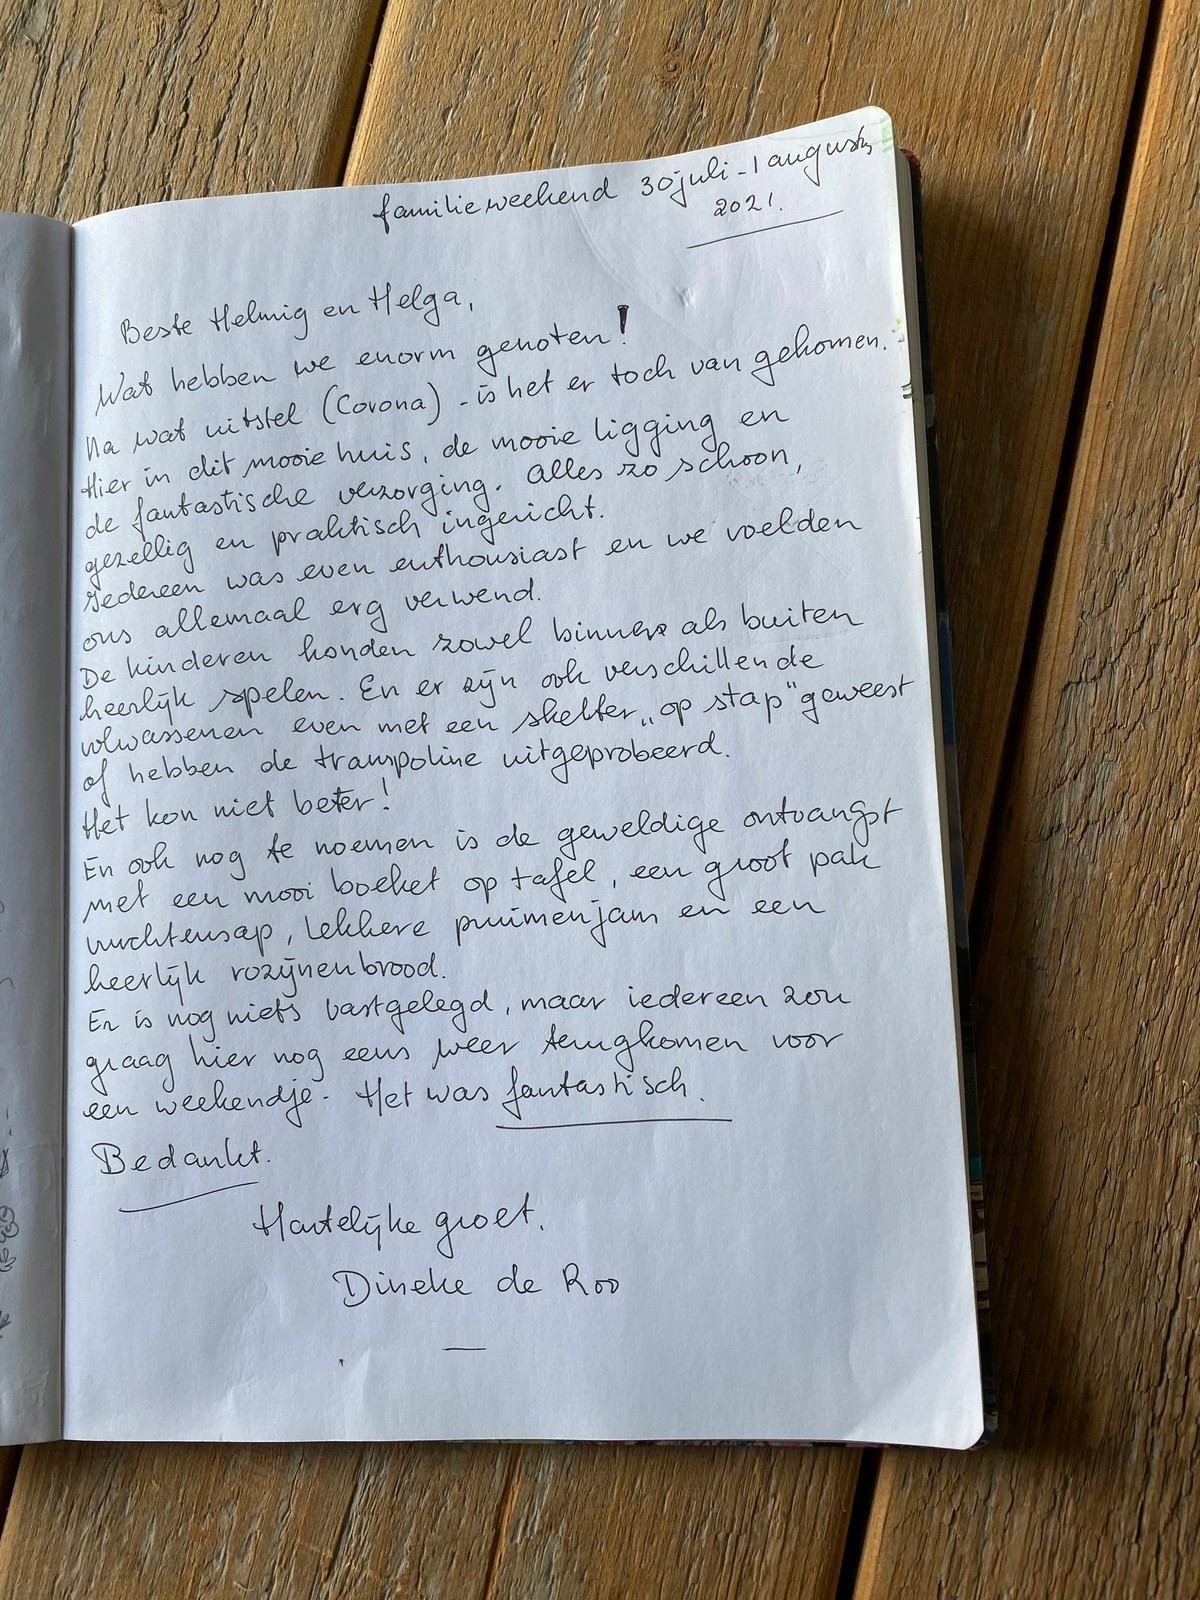 familieweekend 30 juli - 1 augustus
2021.
Beste Helmig en Helga,
Wat hebben we enorm genoten!
Na wat uitstel (Corona) - is het er toch van gekomen.
Hier in dit mooie huis, de mooie ligging en
de fantastische verzorging. Alles zo schoon,
gezellig en praktisch ingericht.
Iedereen was even enthousiast en we voelden
ons allemaal erg verwend.
De kinderen konden zowel binnen als buiten
heerlijk spelen. En er zijn ook verschillende
volwassenen even met een skelter „op stap" geweest
of hebben de trampoline uitgeprobeerd.
Het kon niet beter!
En ook nog te noemen is de geweldige ontvangst
met een mooi boeket op tafel, een groot pak
vruchtensap, lekkere pruimenjam en een
heerlijk rozijnenbrood.
Er is nog niets vastgelegd, maar iedereen zou
graag hier nog eens weer terugkomen voor
een weekendje. Het was fantastisch.
Bedankt.
Hartelijke groet,
Dineke de Roo